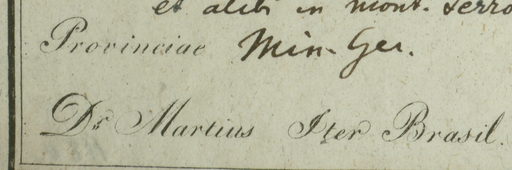 et alibi in mont. Serro
Provinciae Min. Ger.
Dr. Martius Iter Brasil.